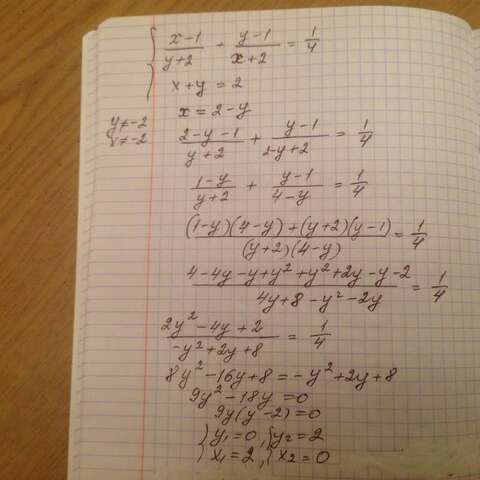 { (x-1)/(y+2) + (y-1)/(x+2) = 1/4
x+y = 2
y≠-2 x = 2-y
x≠-2 (2-y-1)/(y+2) + (y-1)/(2-y+2) = 1/4
(1-y)/(y+2) + (y-1)/(4-y) = 1/4
((1-y)(4-y)+(y+2)(y-1))/((y+2)(4-y)) = 1/4
(4-4y-y+y²+y²+2y-y-2)/(4y+8-y²-2y) = 1/4
(2y²-4y+2)/(-y²+2y+8) = 1/4
8y²-16y+8 = -y²+2y+8
9y²-18y = 0
9y(y-2) = 0
{ y₁=0, { y₂=2
{ x₁=2, { x₂=0